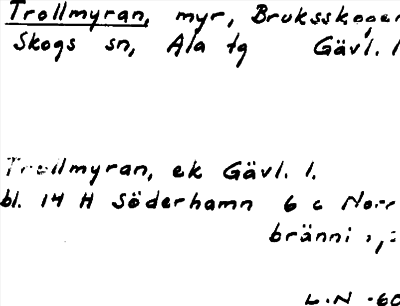 Trollmyran, myr, Bruksskogen
Skogs sn, Ala tg Gävl. l
Trollmyran, ek Gävl. l.
bl. 14 H Söderhamn 6 c Norr
bränni
L.N -60